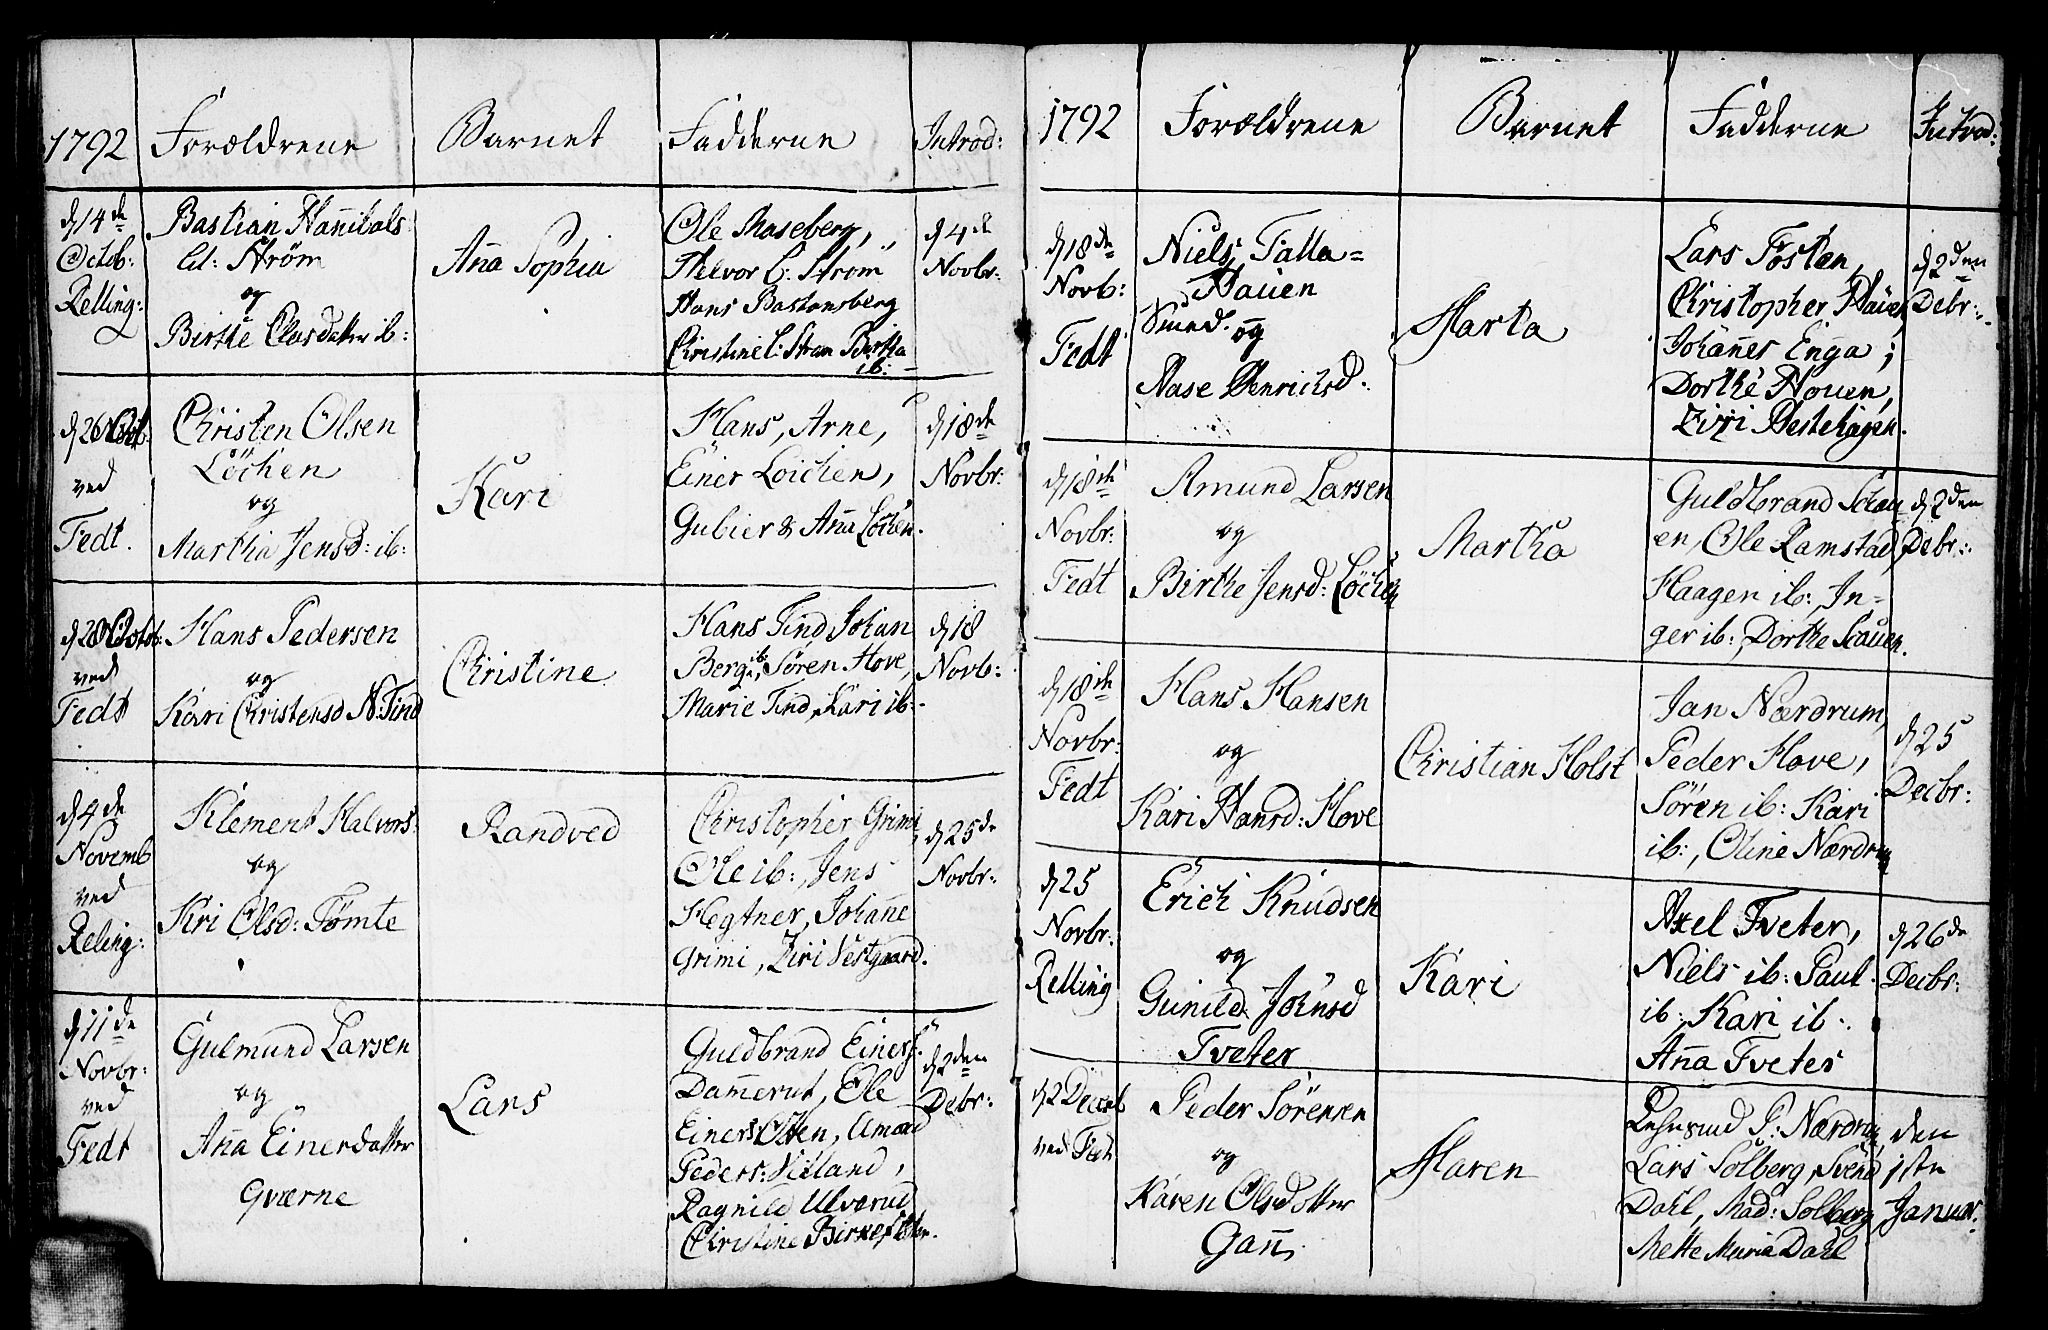 1792 Forældrene Barnet Fadderne Introd:
d 14de
Octob:
Relling:
Bastian Hannibals
Lil: Strøm
og
Birthe Olasdatter ib:
Anna Sophia
Ole Moseberg,
Helvor L: Strøm
Hans Bastansberg
Christine L: Strøm Birthe
ib:
d 4de
Novbr:
d 26 Oct:
ved
Fedt.
Christen Olsen
Löchen
og
Martha Jensd: ib:
Kari
Hans, Arne,
Einer Loichen,
Gubier & Anna Löchen.
d 18de
Novbr:
d 28 Octob:
ved
Fedt
Hans Pedersen
og
Kari Christensd N: Tind
Christine
Hans Tind, Johan
Berg ib:, Søren Hove,
Marie Tind, Kari ib:
d 18
Novb:
d 4de
Novemb
ved
Reling:
Klement Halvors:
og
Kri Olsd: Tömte
Randved
Christopher Grimi,
Ole ib:, Jens
Hegtner, Johanne
Grimi, Ziri Vestgaard.
d 25de
Novbr:
d 11de
Novbr:
ved
Fedt
Gulmund Larsen
og
Anna Einersdatter
Qværne
Lars
Guldbrand Einers:
Dammerut, Ole
Einers Olsten, Amund
Peders: Killand,
Ragnild Ulverud
Christine
d 2den
Debr:
1792 Forældrene Barnet Fadderne Introd:
d 18de
Novb:
Fedt
Niels Talla=
Hauen
Smed. og
Aase Henrichsd:
Marta
Lars Tosten,
Christopher Hauen
Johannes Enga;
Dorthe Houen,
Ziri Hestehagen.
d 2den
Debr:
d 18de
Novbr:
Fedt
Amund Larsen
og
Birthe Jensd: Löchen
Martha
Guldbrand Schau
en, Ole Ramstad,
Haagen ib: In=
ger ib: Dorthe Scauen.
d 2den
Debr:
d 18de
Novbr:
Fedt
Hans Hansen
og
Kari Hansd: Hove
Christian Holst
Jan Nærdrum,
Peder Hove,
Søren ib: Kari
ib:, Oline Nærdrum
d 25
Decbr:
d 25
Novbr:
Relling
Erich Knudsen
og
Gunild Johnsd
Tveter
Kari
Axel Tveter,
Niels ib: Paul
ib: Kari ib:
Anna Tveter
d 26de
Decbr:
d 2 Deceb
ved Fedt
Peder Sørensen
og
Karen Olsdatter
Gann
Maren
P: Nærdrum
Lars Solberg, Svend
Dahl, Mad: Solberg
Mette Maria Dahl
den
1ste
Januar.